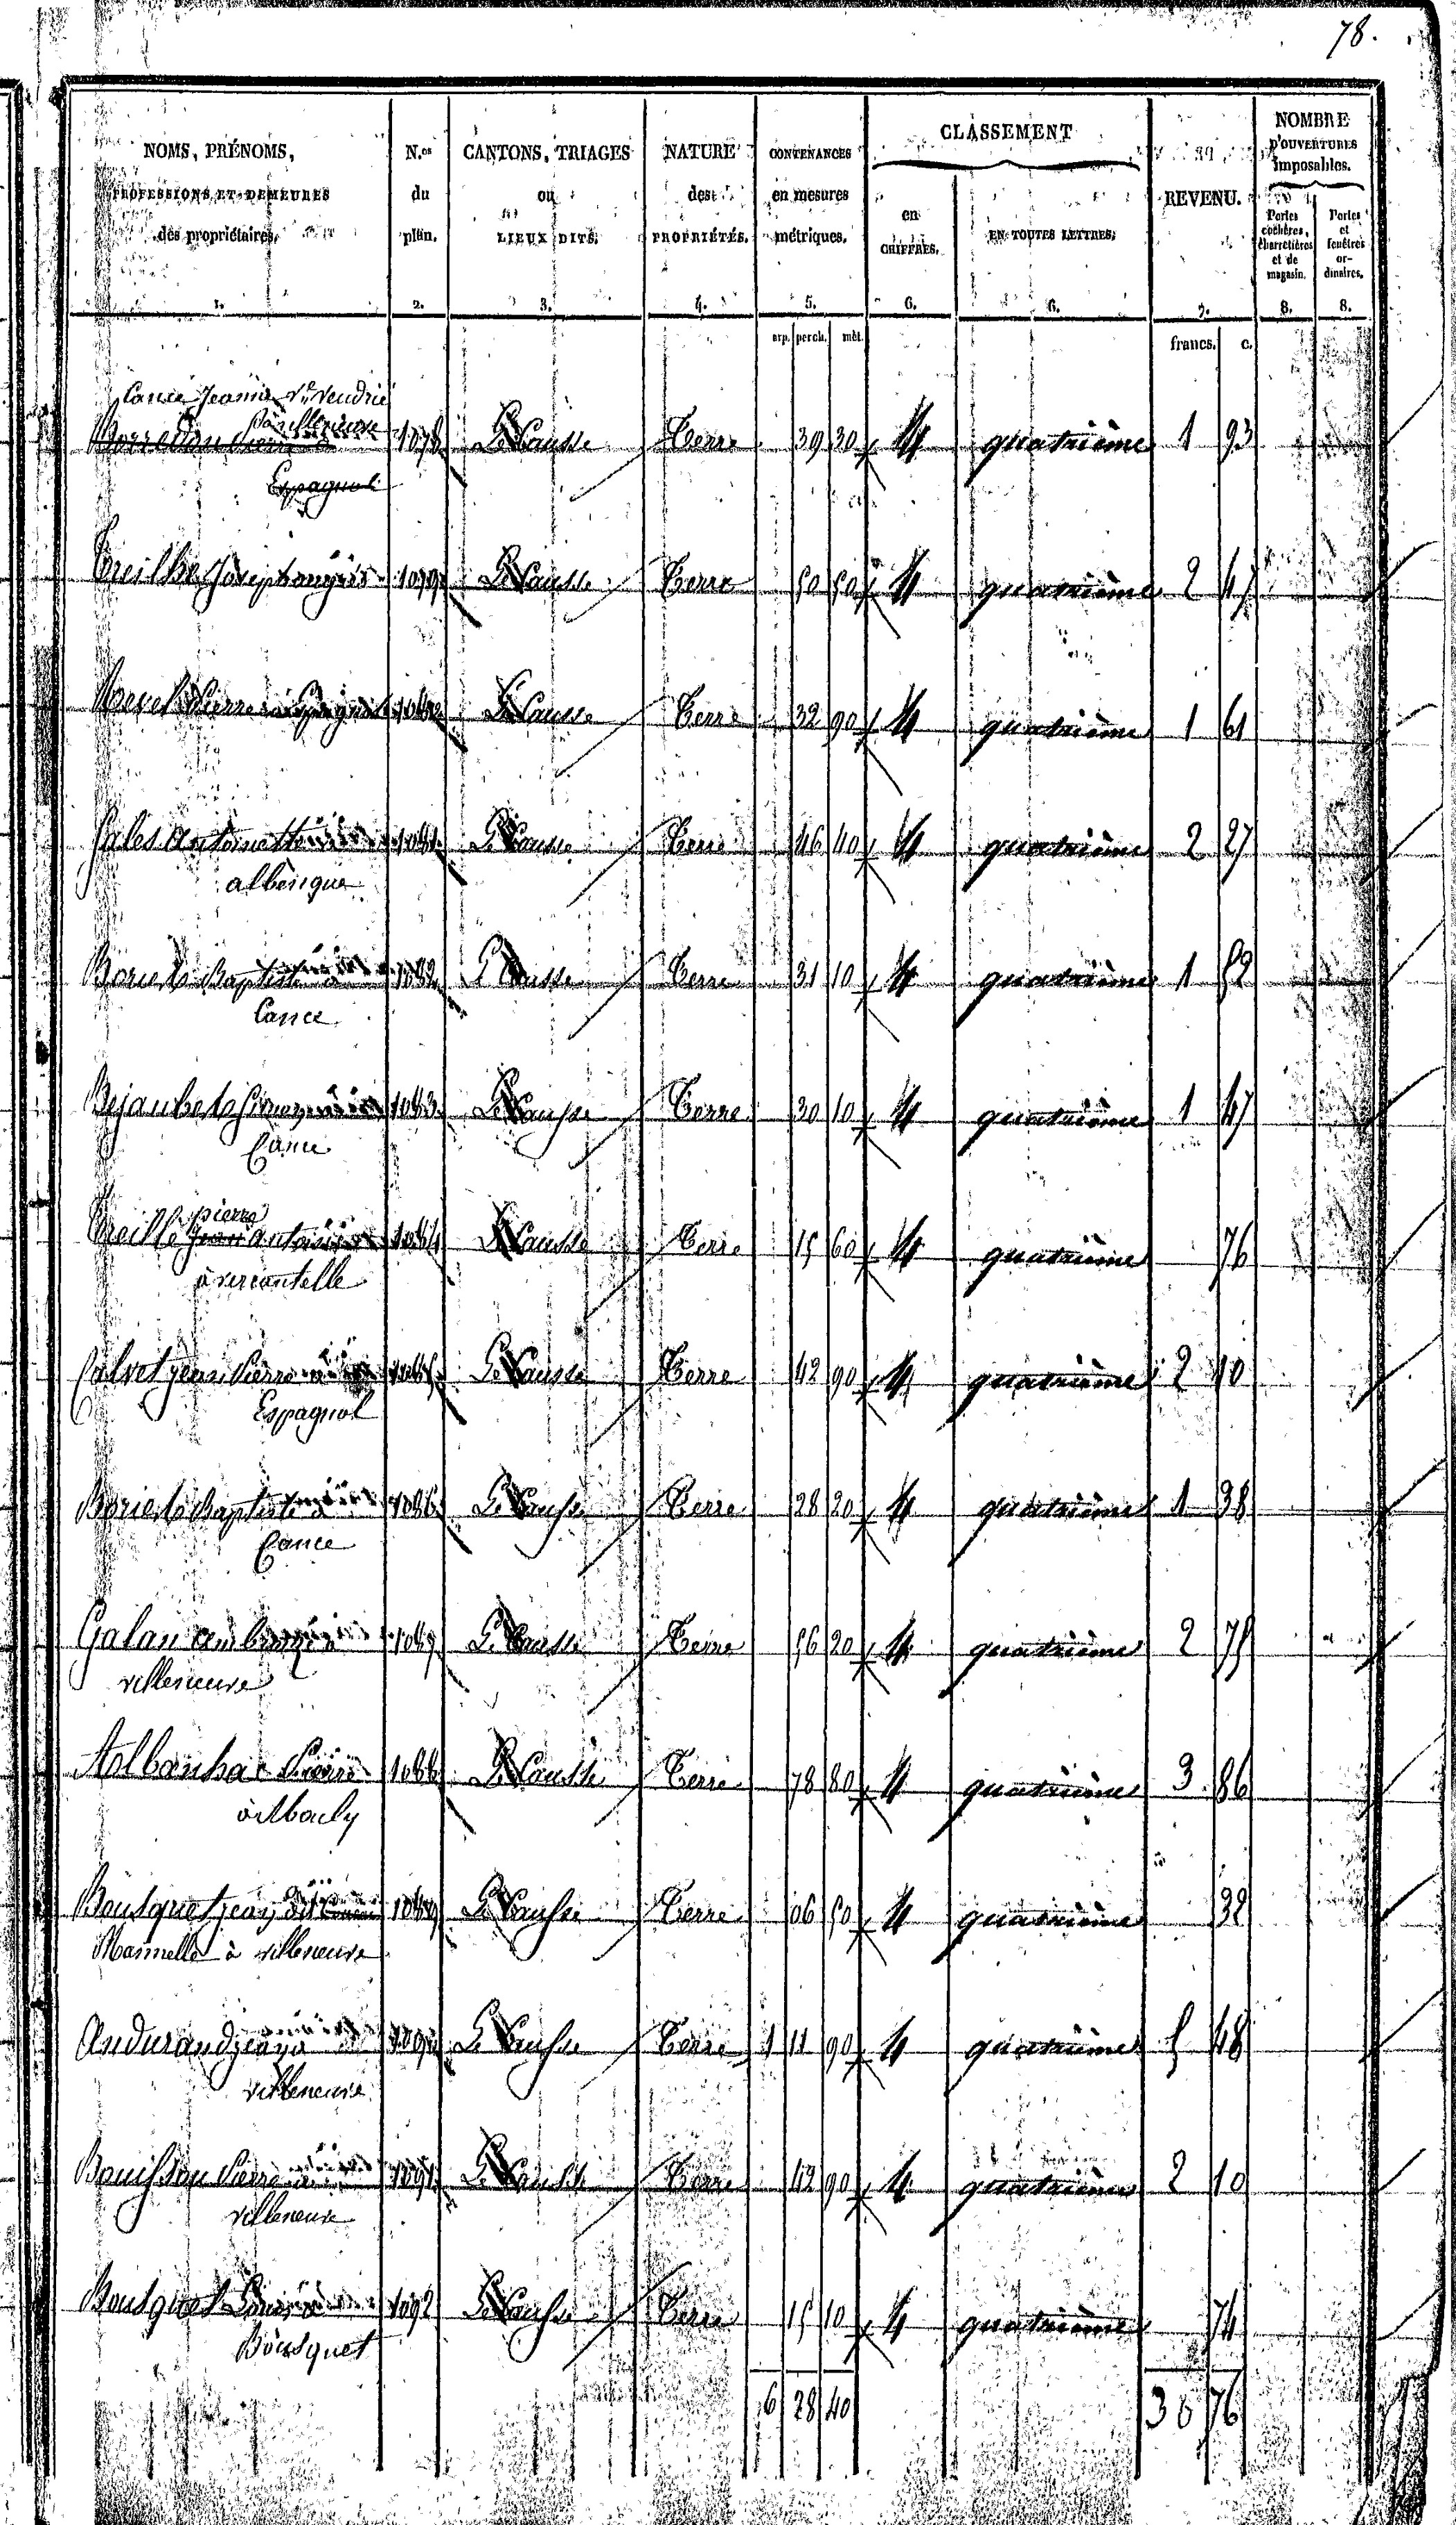 78.
NOMS, PRÉNOMS,
PROFESSIONS ET DEMEURES
des propriétaires.
1.
N.os
du
plan.
2.
CANTONS, TRIAGES
ou
LIEUX DITS.
3.
NATURE
des
PROPRIÉTÉS.
4.
CONTENANCES
en mesures
métriques.
5.
CLASSEMENT
en
CHIFFRES.
6.
EN TOUTES LETTRES.
6.
REVENU.
7.
NOMBRE
D'OUVERTURES
imposables.
Portes
cochères,
charretières
et de
magasin.
8.
Portes
et
fenêtres
or-
dinaires.
8.
arp. perch. mèt. francs. c.
Cance Jeanne Ve Vendrié
à villeneuve
Pierre à 1078 Le Causse Terre 39 30 4 quatrième 1 93
Espagnol
Treilhe Joseph 1079 Le Causse Terre 50 50 4 quatrième 2 47
Pierre à Espagnol 1080 Le Causse Terre 32 90 4 quatrième 1 61
Gales antoinette 1081 Le Causse Terre 46 40 4 quatrième 2 27
albenque
Borie de Baptiste à 1082 Le Causse Terre 31 10 4 quatrième 1 52
Cance
Bejaubert 1083 Le Causse Terre 30 10 4 quatrième 1 47
Cance
pierre
Treille Jean antoine 1084 Le Causse Terre 15 60 4 quatrième 76
à vercantelle
Calvet jean Pierre à 1085 Le Causse Terre 42 90 4 quatrième 2 10
Espagnol
Borie de Baptiste à 1086 Le Causse Terre 28 20 4 quatrième 1 38
Cance
Galan ambroize à 1087 Le Causse Terre 56 20 4 quatrième 2 75
villeneuve
Albanhac Pierre 1088 Le Causse Terre 78 80 4 quatrième 3 86
Bousquet jean dit 1089 Le Causse Terre 06 50 4 quatrième 32
à villeneuve
andurand jean à 1090 Le Causse Terre 1 11 90 4 quatrième 5 48
villeneuve
Bouisson Pierre à 1091 Le Causse Terre 42 90 4 quatrième 2 10
villeneuve
Bousquet Louis à 1092 Le Causse Terre 15 10 4 quatrième 74
Bousquet
6 28 40 30 76